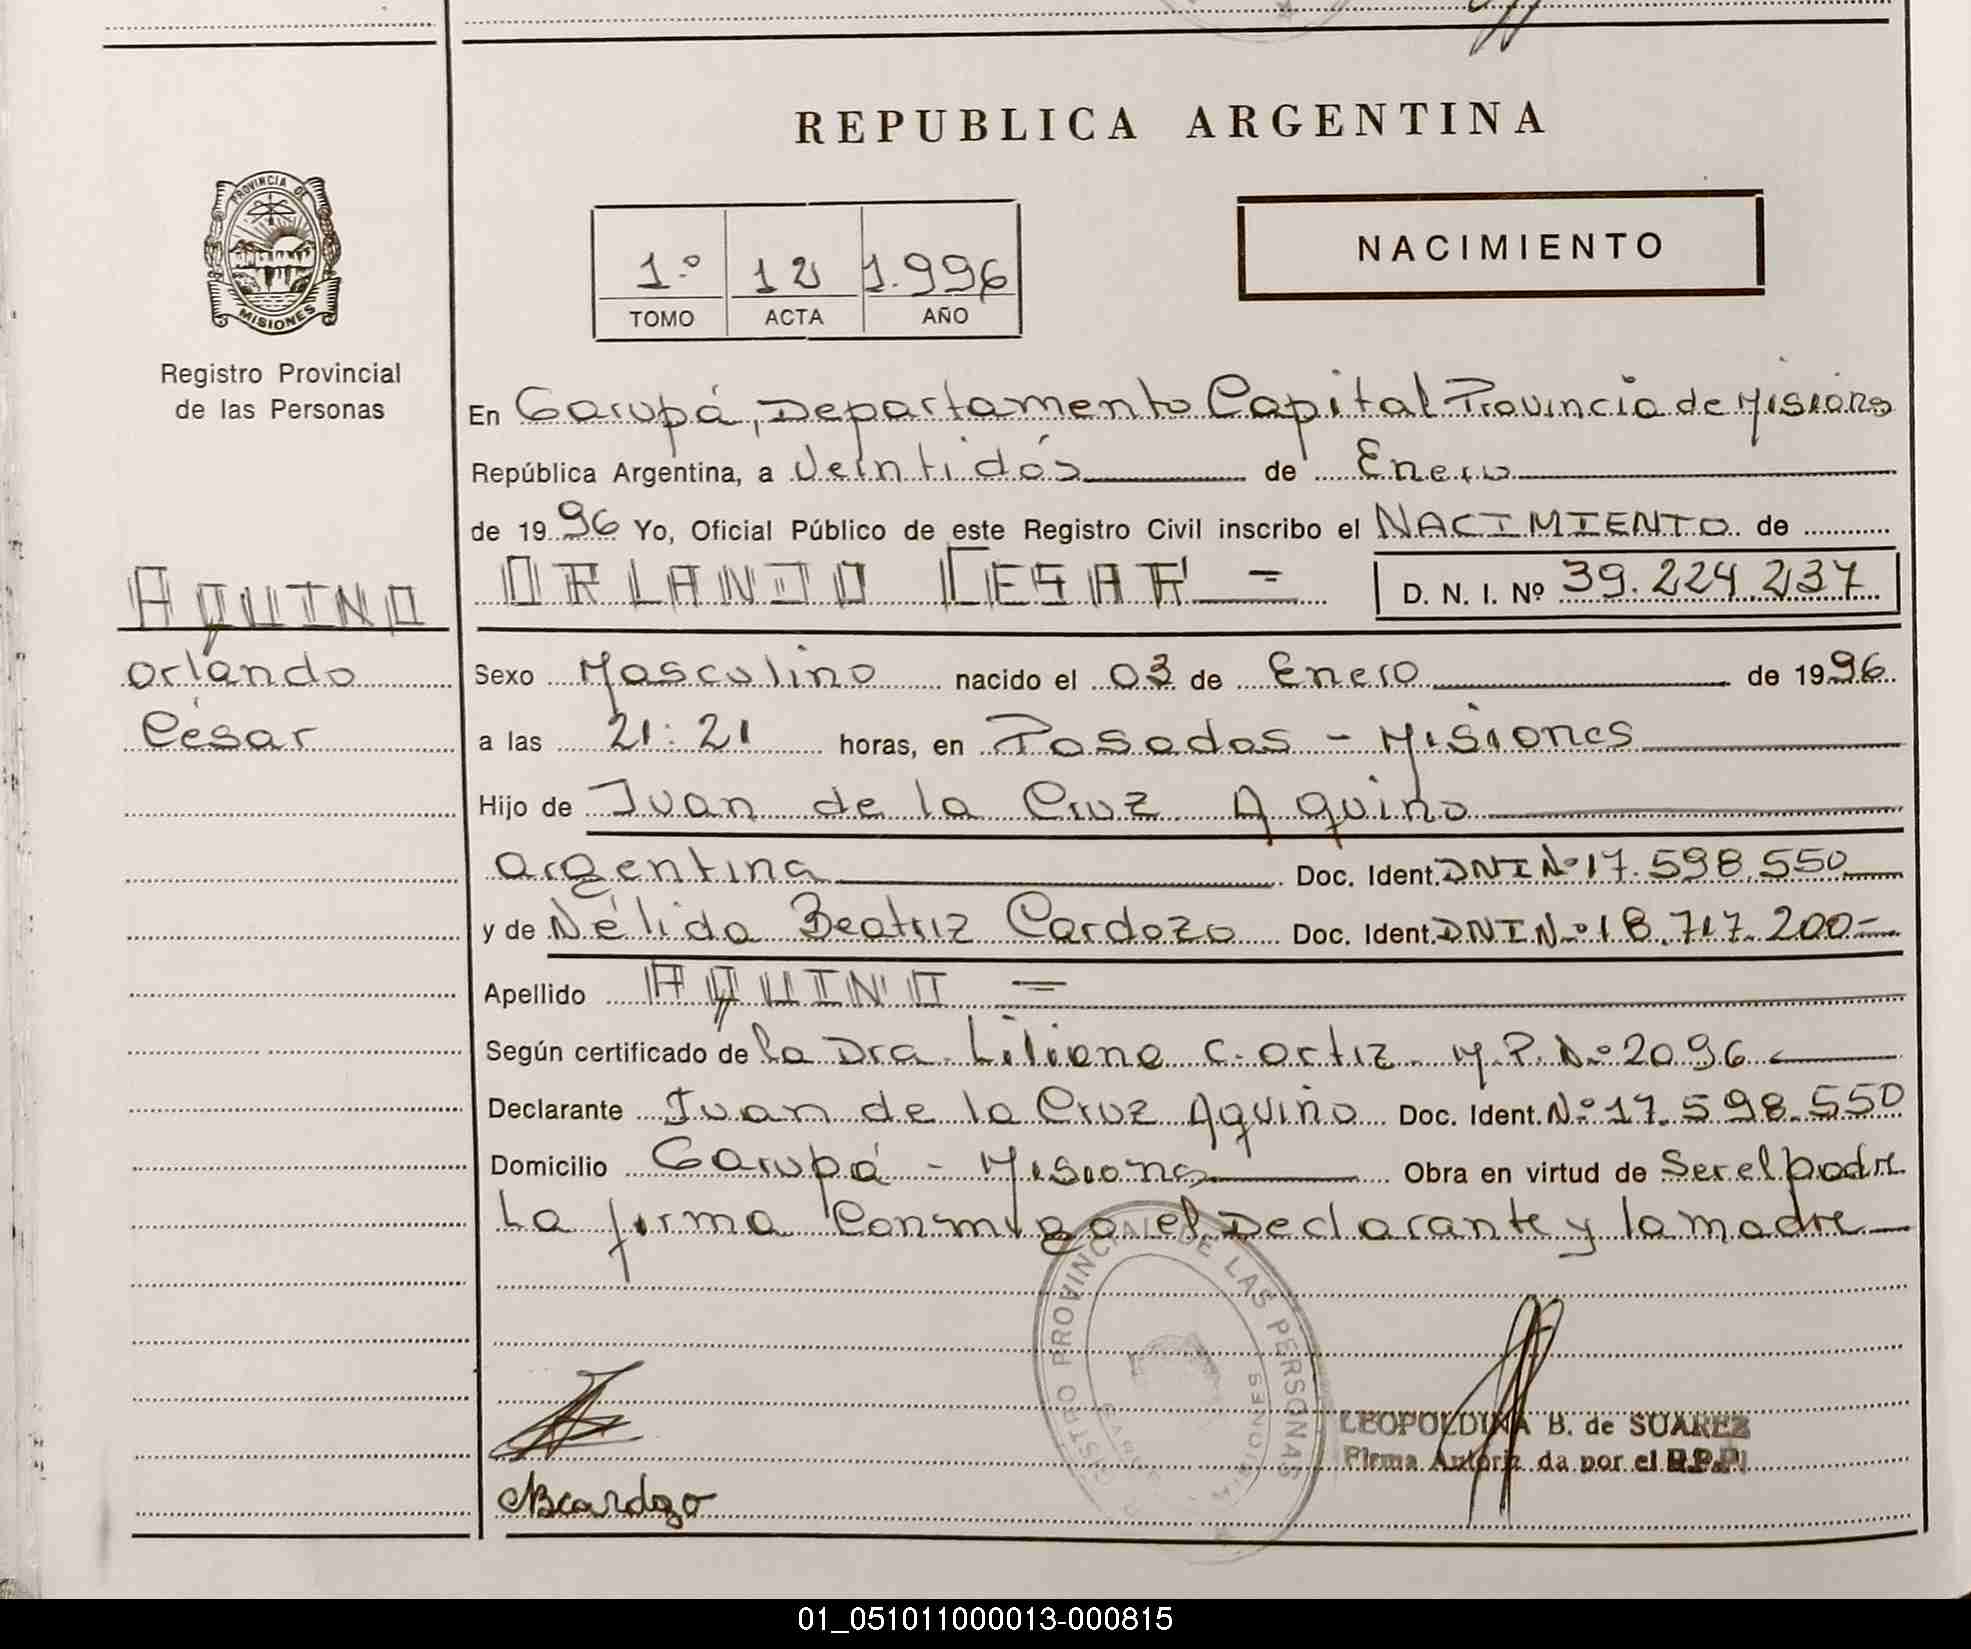 REPUBLICA ARGENTINA
PROVINCIA DE
MISIONES
Registro Provincial
de las Personas
1.º 12 1.996
TOMO ACTA AÑO
NACIMIENTO
En Garupá, Departamento Capital Provincia de Misiones
República Argentina, a Veintidós de Enero
de 1996 Yo, Oficial Público de este Registro Civil inscribo el NACIMIENTO de
AQUINO
Orlando
César
ORLANDO CESAR = D. N. I. Nº 39.224.237
Sexo Masculino nacido el 03 de Enero de 1996
a las 21:21 horas, en Posadas - Misiones
Hijo de Juan de la Cruz Aquino
argentina Doc. Ident. DNI Nº 17.598.550
y de Nélida Beatriz Cardozo Doc. Ident. DNI Nº 18.717.200=
Apellido AQUINO =
Según certificado de la Dra. Liliana C. Ortiz M.P. Nº 2096
Declarante Juan de la Cruz Aquino Doc. Ident. Nº 17.598.550
Domicilio Garupá - Misiones Obra en virtud de Ser el padre
La firma Conmigo el Declarante y la madre
REGISTRO PROVINCIAL DE LAS PERSONAS
MISIONES
LEOPOLDINA B. de SUAREZ
Firma Autorizada por el R.P.P.
NBCardozo
01_051011000013-000815